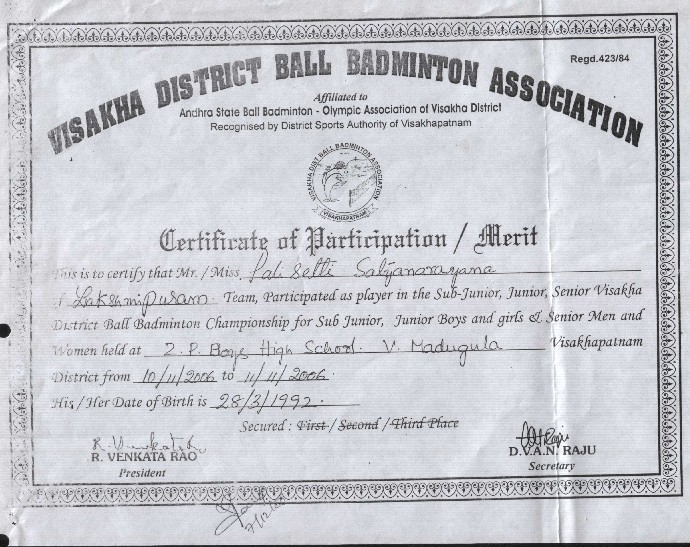 Regd.423/84
VISAKHA DISTRICT BALL BADMINTON ASSOCIATION
Affiliated to
Andhra State Ball Badminton - Olympic Association of Visakha District
Recognised by District Sports Authority of Visakhapatnam
VISAKHA DIST BALL BADMINTON ASSOCIATION
VISAKHAPATNAM
Certificate of Participation / Merit
This is to certify that Mr. / Miss Palisetti Satyanarayana
Lakshmipuram Team, Participated as player in the Sub-Junior, Junior, Senior Visakha
District Ball Badminton Championship for Sub Junior, Junior Boys and girls & Senior Men and
Women held at Z.P. Boys High School. V. Madugula Visakhapatnam
District from 10/11/2006 to 11/11/2006.
His / Her Date of Birth is 28/3/1992.
Secured : First / Second / Third Place
R. Venkata
R. VENKATA RAO
President
D.V.A.N. RAJU
Secretary